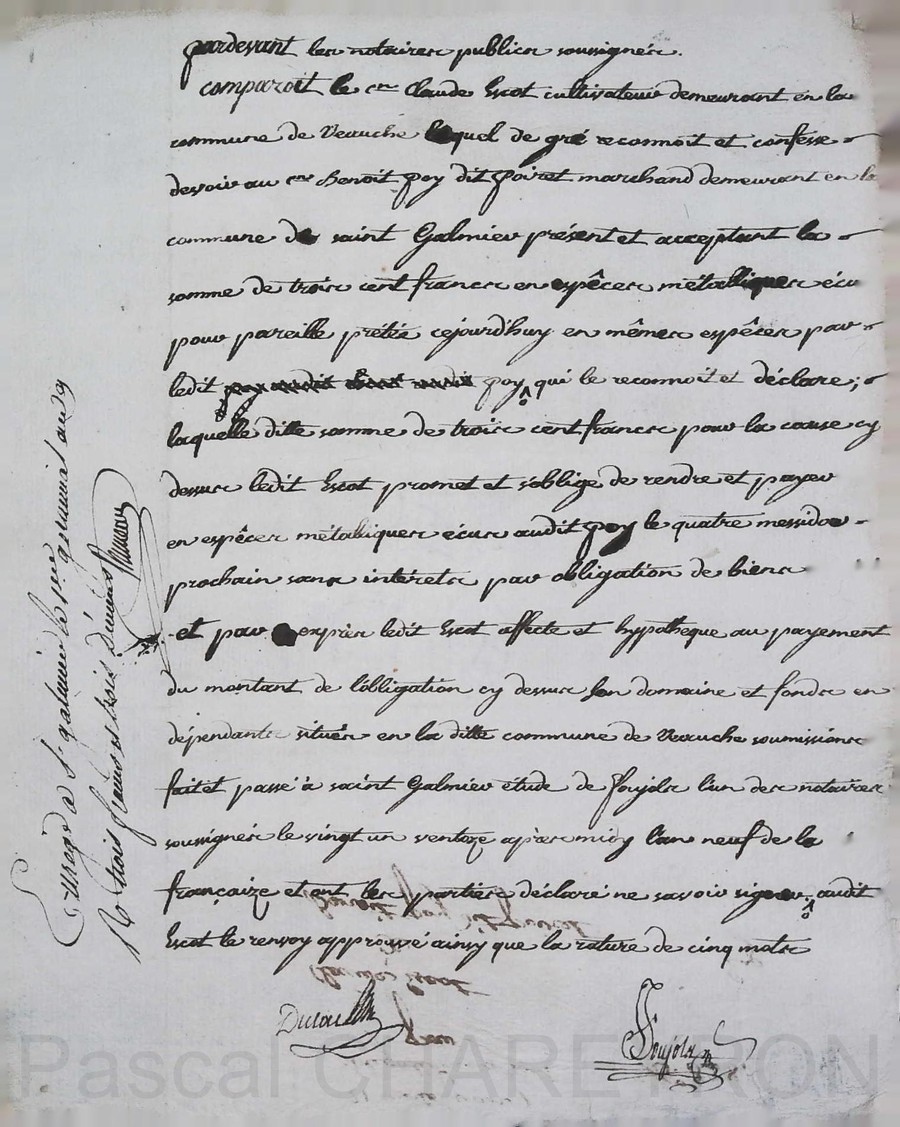 pardevant les notaires publics soussignés.
comparoit le cen Claude Escot cultivateur demeurant en la
commune de Veauche lequel de gré reconnoit et confesse
devoir au cen Benoit poy dit poiret marchand demeurant en la
commune de saint Galmier présent et acceptant la
somme de trois cent francs en espêces métalliques écu
pour pareille prétée cejourd'huy en mêmes espêces par
ledit poy qui le reconnoit et déclare;
laquelle ditte somme de trois cent francs pour la cause cy
dessus ledit Escot promet et s'oblige de rendre et payer
en espêces métalliques écus audit poy le quatre messidor
prochain sans intérets par obligation de biens
et par exprès ledit Escot affecte et hypotheque au payement
du montant de l'obligation cy dessus son domaine et fonds en
dépendants situés en la ditte commune de Veauche soumissions
fait et passé à saint Galmier étude de foujols l'un des notaires
soussignés le vingt un ventoze après midy l'an neuf de la
françaize et ont les parties déclaré ne savoir signer, audit
Escot le renvoy approuvé ainsy que la rature de cinq mots
Foujols
Enregé à St galmier le 1er germinal an 9
R trois francs et trois décimes
Pascal CHARETIRON